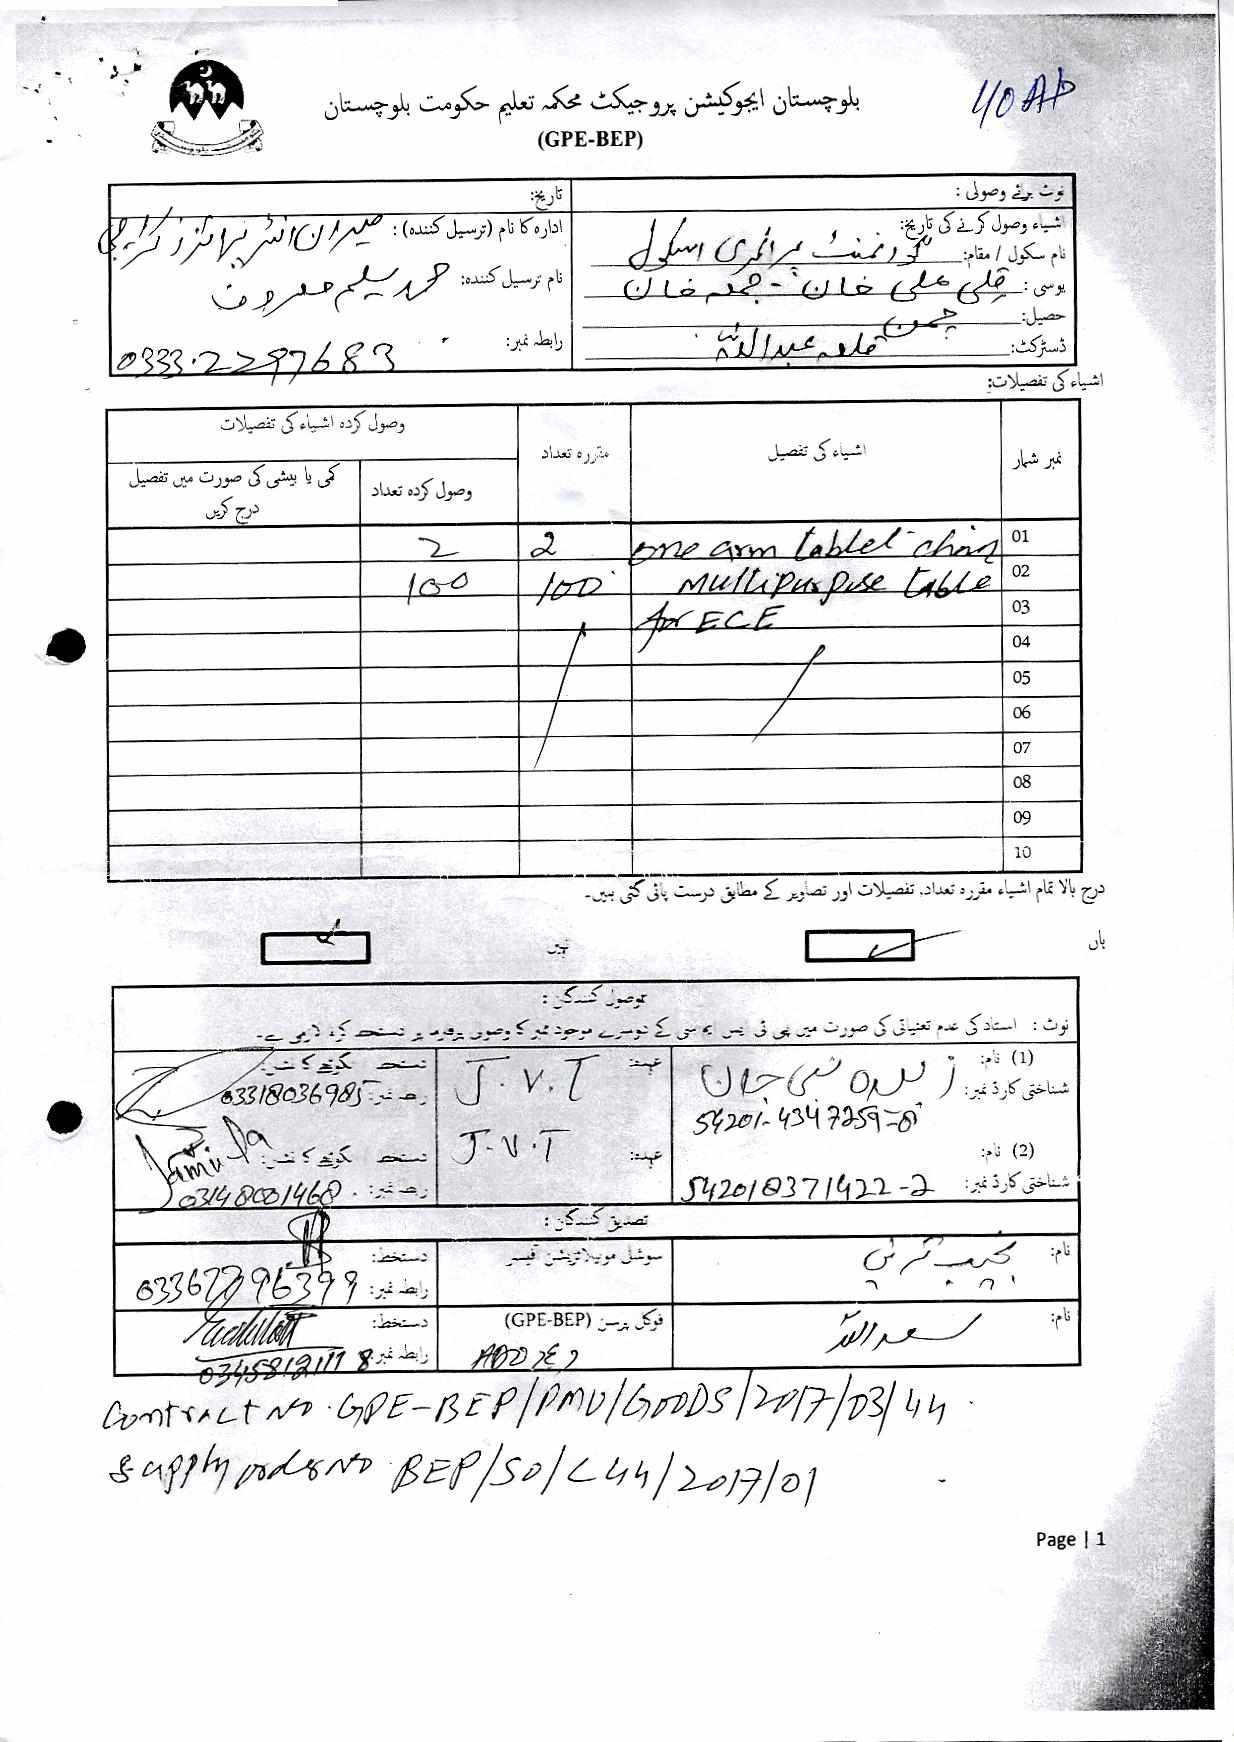 40AP
بلوچستان ایجوکیشن پروجیکٹ محکمہ تعلیم حکومت بلوچستان
(GPE-BEP)
نوٹ برائے وصولی :
تاریخ:
اشیاء وصول کرنے کی تاریخ:
ادارہ کا نام (ترسیل کنندہ) : میران انٹرپرائزز کراچی
نام سکول / مقام: گورنمنٹ پرائمری اسکول
نام ترسیل کنندہ: محمد سلیم معروف
یوسی : قلی علی خان - جمعہ خان
حصیل: چمن
رابطہ نمبر: 0333-2297683
ڈسٹرکٹ: قلعہ عبداللہ
اشیاء کی تفصیلات:
نمبر شمار
اشیاء کی تفصیل
مقررہ تعداد
وصول کردہ اشیاء کی تفصیلات
وصول کردہ تعداد
کمی یا بیشی کی صورت میں تفصیل درج کریں
01 one arm tablet chair 2 2
02 Multipurpose table 100 100
03 for ECE
04
05
06
07
08
09
10
درج بالا تمام اشیاء مقررہ تعداد، تفصیلات اور تصاویر کے مطابق درست پائی گئی ہیں۔
ہاں
نہیں
موصول کنندگان :
نوٹ : استاد کی عدم تعیناتی کی صورت میں پی ٹی ایس ایم سی کے دوسرے موجود ممبر کا وصولی پرفرمہ پر دستخط کرنا لازمی ہے۔
(1) نام: بی بی جان
عہدہ: J.V.T
دستخط انگوٹھے کا نشان:
شناختی کارڈ نمبر: 54201-4347259-0
رابطہ نمبر: 03318036985
(2) نام:
عہدہ: J.V.T
دستخط انگوٹھے کا نشان: Jamila
شناختی کارڈ نمبر: 542018371422-2
رابطہ نمبر: 03148001468
تصدیق کنندگان :
نام: نجیب ترین
سوشل موبیلائزیشن آفیسر
دستخط:
رابطہ نمبر: 03367796399
نام: سعد اللہ
فوکل پرسن (GPE-BEP)
دستخط:
رابطہ نمبر: 03458121118
Contract No. GPE-BEP/PMU/GOODS/2017/03/44
Supply order No BEP/SO/C44/2017/01
Page | 1